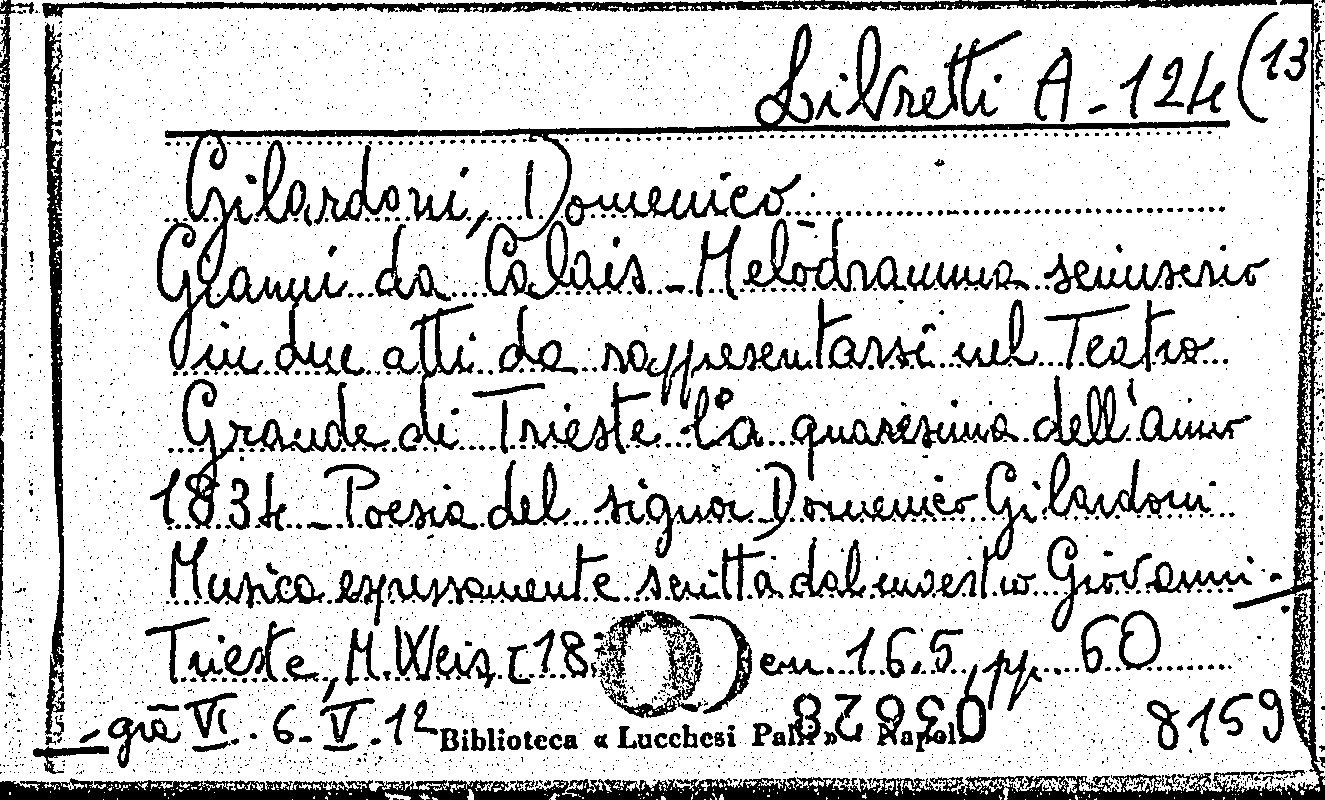 Libretti A-124(13
Gilardoni, Domenico
Gianni da Calais - Melodramma semiserio
in due atti da rappresentarsi nel Teatro
Grande di Trieste la quaresima dell'anno
1834 - Poesia del signor Domenico Gilardoni
Musica espressamente scritta dal maestro Giovanni -
Trieste, M. Weis, [18 cm. 16.5, pp. 60
- già VI. 6. V. 12
Biblioteca « Lucchesi Palli » Napoli
03628
8159